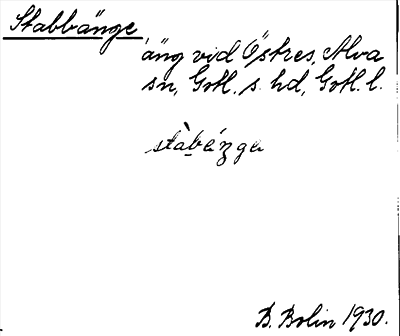 Stabbänge,
äng vid Östres, Alva
sn, Gotl. s. hd, Gotl. l.
stàbéngɐ
B. Bolin 1930.